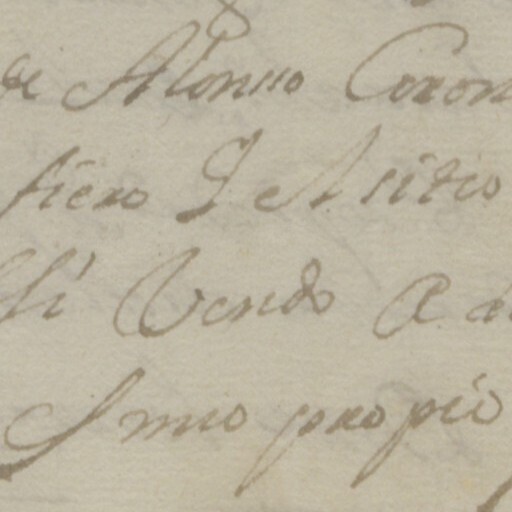 de Alonsso Coron
fiero Y el sitio
assi Vendo a d
Y mio propio